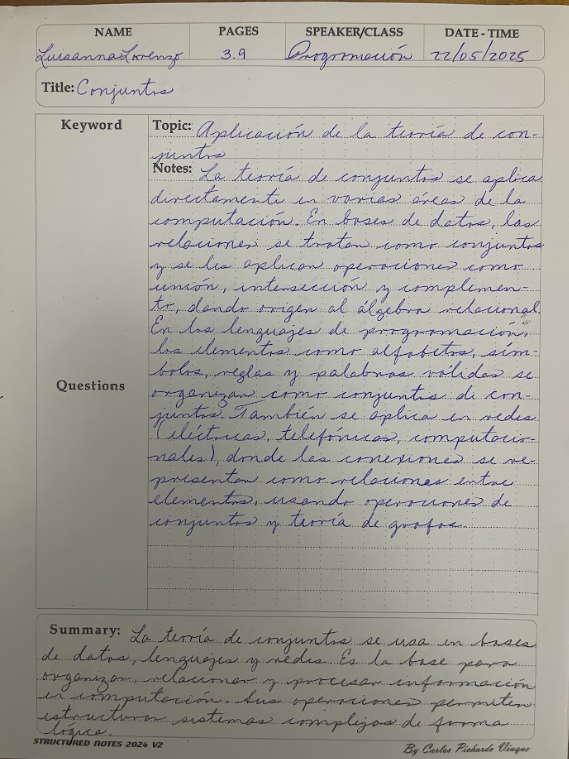 NAME PAGES SPEAKER/CLASS DATE - TIME
Luisanna Lorenzo 3.9 Programación 22/05/2025
Title: Conjuntos
Keyword
Topic: Aplicación de la teoría de con-
juntos
Notes: La teoría de conjuntos se aplica
directamente en varias áreas de la
computación. En bases de datos, las
relaciones se tratan como conjuntos
y se les aplican operaciones como
unión, intersección y complemen-
to, dando origen al álgebra relacional.
En los lenguajes de programación,
los elementos como alfabetos, sím-
bolos, reglas y palabras válidas se
Questions
organizan como conjuntos de con-
juntos. También se aplica en redes
(eléctricas, telefónicas, computacio-
nales), donde las conexiones se re-
presentan como relaciones entre
elementos, usando operaciones de
conjuntos y teoría de grafos.
Summary: La teoría de conjuntos se usa en bases
de datos, lenguajes y redes. Es la base para
organizar, relacionar y procesar información
en computación. Sus operaciones permiten
estructurar sistemas complejos de forma
lógica.
STRUCTURED NOTES 2024 V2 By Carlos Pichardo Vinque